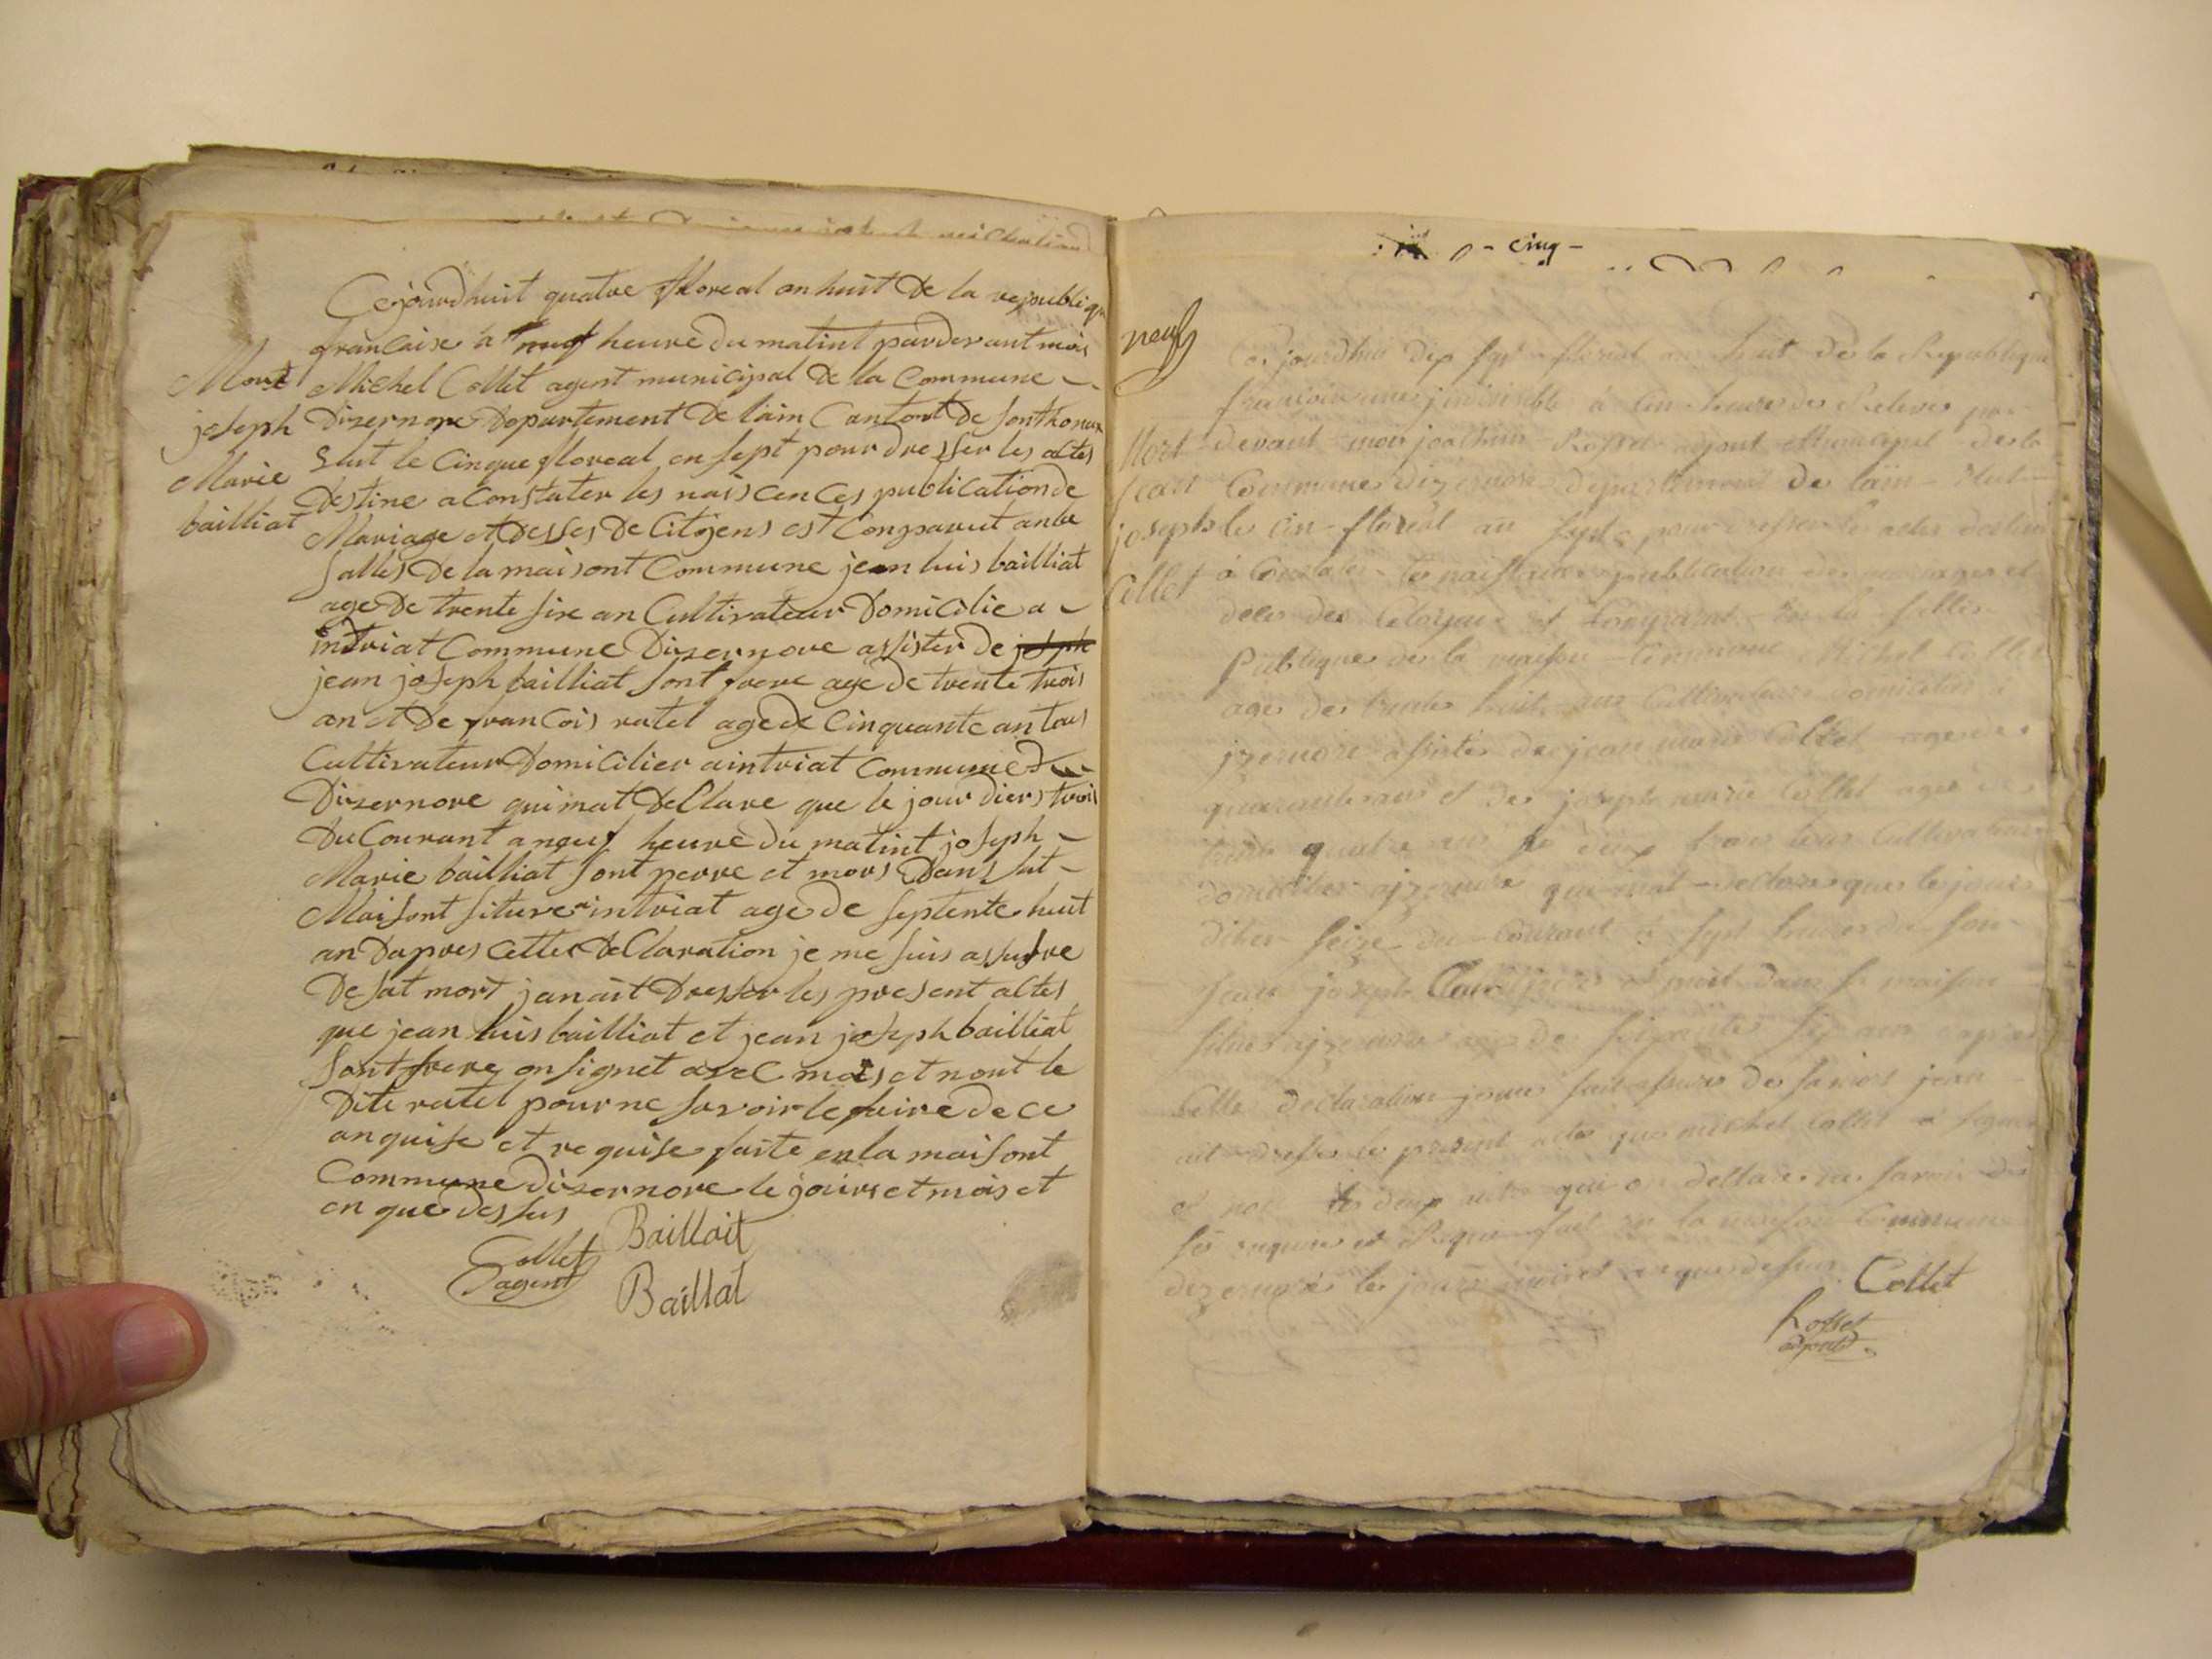 Cejourdhuit quatre floreal an huit de la republique
francaise a neuf heure du matint pardevant moi
Michel Collet agent municipal de la Commune
Dizernore Departement de lain Cantont de sonthonax
Elut le Cinque floreal en sept pour dresser les actes
destine a Constater les naiscences publication de
Mariage et desses de Citojens est Comparut an la
salles de la maisont Commune jean luis bailliat
age de trente six an Cultivateur Domicilie a
intriat Commune Dizernore assister de joseph
jean joseph bailliat sont frere age de trente trois
an et de francois ratel age de Cinquante an tous
Cultivateur Domicilier a intriat Commune de
Dizernore qui mat declare que le jour diers trois
du Courant a neuf heure du matint joseph
Marie bailliat sont perre et mors dans sat
Maisont situere a intriat age de septente huit
an dapres cettes declaration je me suis assurre
De sat mort janait dresser les present actes
que jean luis bailliat et jean joseph bailliat
sont frere on signet avec mois et nont le
dite ratel pour ne savoir le faire de ce
anquise et requise faite en la maisont
Commune dizernore le jours et mois et
en que dessus
Baillait
Collet
agent
Baillat
Mort
joseph
Marie
bailliat
cinq
neuf
Mort
jean
joseph
Collet
Cejourdhui dix sept floreal an huit de la Republique
francoise une indivisible a cin heure de Releve par
devant moi joachim Rosset ajout Municipal de la
Commune dizernore departement de lain Elut
le cin floreal an sept pour dresser les actes destine
a Constater les naissance publication de mariages et
deces des Citoyens et Comparut en la salles
Publique de la maison Commune Michel Collet
age de trente huit ans Cultivateur domicilier
izernore assister de jean marie Collet age de
quarante ans et de joseph marie Collet age de
trente quatre ans deux frere tous Cultivateur
domicilier a izernore qui mat declare que le jour
dihier seize du Courant a sept heure du soir
jean joseph Collet pere et mort dans sa maison
situer a izernore age de soixante six ans dapres
Cette declaration je me suit assure de sa mort jean
ait dresse le present acte que michel Collet a signer
et non les deux autre qui on dellare ne savoir de
ce enquis et Requis fait en la maison Commune
dezernore les jours mois et an que dessus
Collet
Rosset
adjout